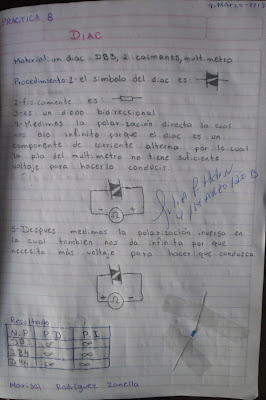 PRACTICA 8
4-Marzo-2013
DIAC
Material: un diac DB3, 2 caimanes, multimetro
Procedimiento: 1- el simbolo del diac es:
2- fisicamente es:
3- es un diodo bidireccional
4- Medimos la polarización directa la cual
nos dio infinito porque el diac es un
componente de corriente alterna por lo cual
la pila del multimetro no tiene suficiente
voltaje para hacerlo conducir.
Ω
5- Despues medimos la polarización inversa en
la cual tambien nos da infinito por que
necesita más voltaje para hacer que conduzca
Ω
Resultado
N.P P.D P.I
DB3 ∞ ∞
DB4 ∞ ∞
∞ ∞
Marisol Rodríguez Zanella